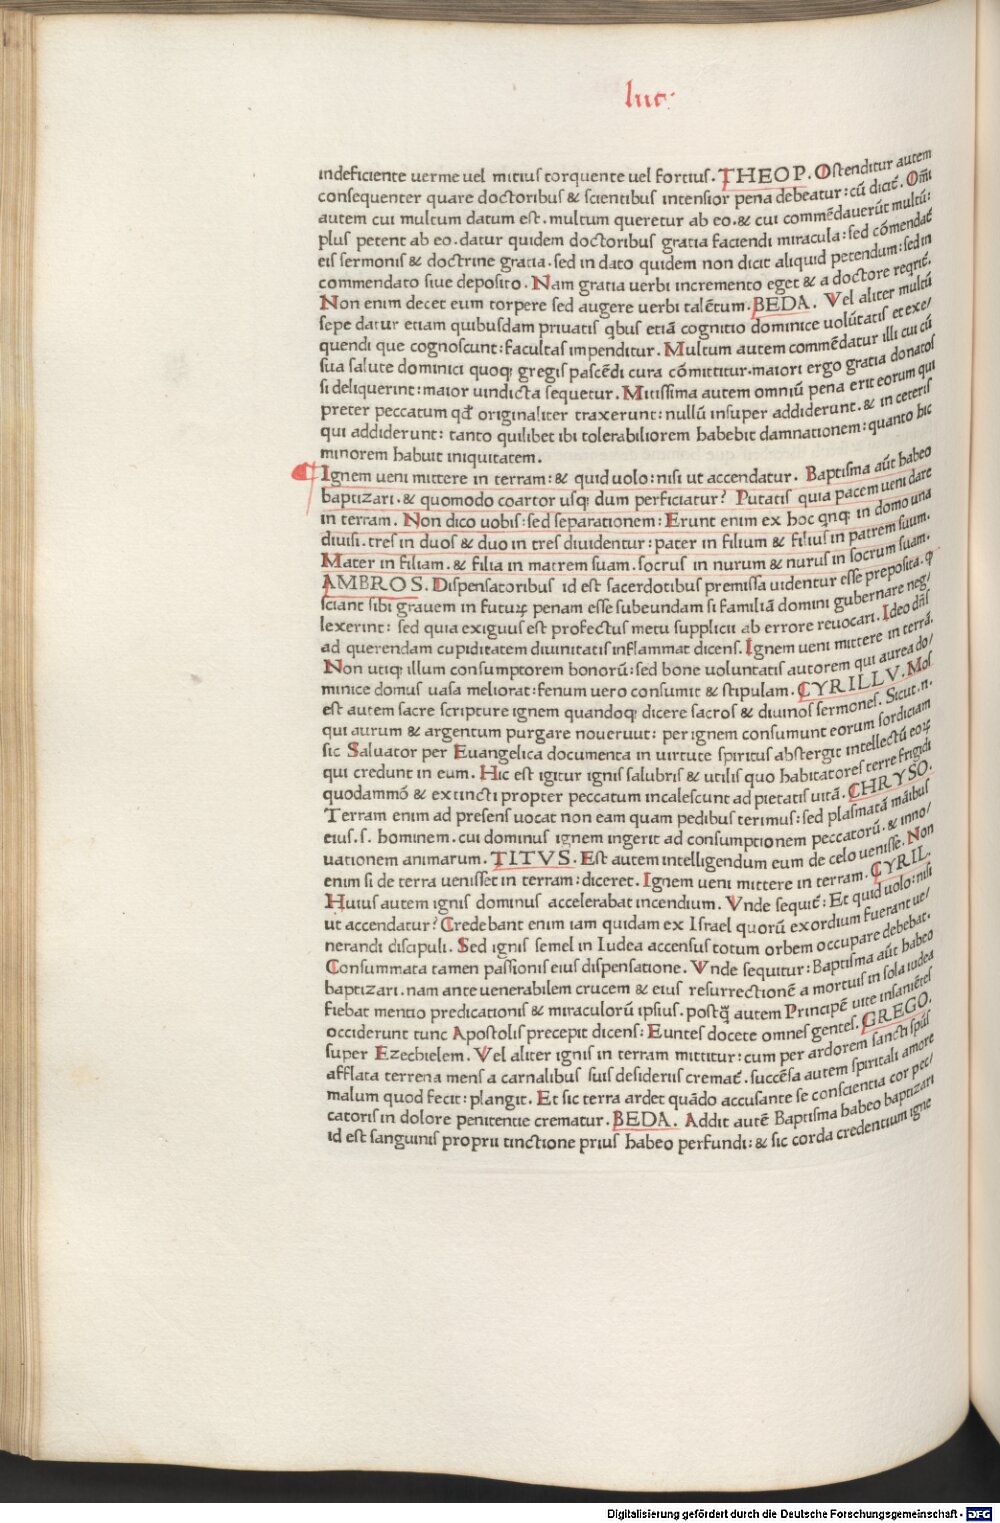 luc.
indeficiente uerme uel mitius torquente uel fortius. THEOP. Ostenditur autem
consequenter quare doctoribus & scientibus intensior pena debeatur: cū dicit̄. Om̄i
autem cui multum datum est. multum queretur ab eo. & cui commēdauerūt multū:
plus petent ab eo. datur quidem doctoribus gratia faciendi miracula: sed cōmendat̄
eis sermonis & doctrine gratia. sed in dato quidem non dicit aliquid petendum: sed in
commendato siue deposito. Nam gratia uerbi incremento eget & a doctore reqrit̄.
Non enim decet eum torpere sed augere uerbi talētum. BEDA. Vel aliter multū
sepe datur etiam quibusdam priuatis qbus etiā cognitio dominice uolūtatis et exe/
quendi que cognoscunt: facultas impenditur. Multum autem commēdatur illi cui cū
sua salute dominici quoqꝫ gregis pascēdi cura cōmittitur. maiori ergo gratia donatos
si deliquerint: maior uindicta sequetur. Mitissima autem omniū pena erit eorum qui
preter peccatum qd̄ originaliter traxerunt: nullū insuper addiderunt. & in ceteris
qui addiderunt: tanto quilibet ibi tolerabiliorem habebit damnationem: quanto hic
minorem habuit iniquitatem.
¶ Ignem ueni mittere in terram: & quid uolo: nisi ut accendatur. Baptisma aūt habeo
baptizari. & quomodo coartor usqꝫ dum perficiatur? Putatis quia pacem ueni dare
in terram. Non dico uobis: sed separationem: Erunt enim ex hoc qnqꝫ in domo una
diuisi. tres in duos & duo in tres diuidentur: pater in filium & filius in patrem suum.
Mater in filiam. & filia in matrem suam. socrus in nurum & nurus in socrum suam.
AMBROS. Dispensatoribus id est sacerdotibus premissa uidentur esse preposita. q
sciant sibi grauem in futuꝝ penam esse subeundam si familiā domini gubernare neg/
lexerint: sed quia exiguus est profectus metu supplicii ab errore reuocari. Ideo dn̄s
ad querendam cupiditatem diuinitatis inflammat dicens. Ignem ueni mittere in terrā.
Non utiqꝫ illum consumptorem bonorū: sed bone uoluntatis autorem qui aurea do/
minice domus uasa meliorat: fenum uero consumit & stipulam. CYRILLV. Mos
est autem sacre scripture ignem quandoqꝫ dicere sacros & diuinos sermones. Sicut .n.
qui aurum & argentum purgare nouerunt: per ignem consumunt eorum sordiciam
sic Saluator per Euangelica documenta in uirtute spiritus abstergit intellectū eoꝝ
qui credunt in eum. Hic est igitur ignis salubris & utilis quo habitatores terre frigidi
quodammō & extincti propter peccatum incalescunt ad pietatis uitā. CHRYSO.
Terram enim ad presens uocat non eam quam pedibus terimus: sed plasmatā māibus
eius. s. hominem. cui dominus ignem ingerit ad consumptionem peccatorū. & inno/
uationem animarum. TITVS. Est autem intelligendum eum de celo uenisse. Non
enim si de terra uenisset in terram: diceret. Ignem ueni mittere in terram. CYRIL.
Huius autem ignis dominus accelerabat incendium. Vnde sequit̄: Et quid uolo: nisi
ut accendatur? Credebant enim iam quidam ex Israel quorū exordium fuerant ue/
nerandi discipuli. Sed ignis semel in Iudea accensus totum orbem occupare debebat.
Consummata tamen passionis eius dispensatione. Vnde sequitur: Baptisma aūt habeo
baptizari. nam ante uenerabilem crucem & eius resurrectionē a mortuis in sola iudea
fiebat mentio predicationis & miraculorū ipsius. postq̄ autem Principē uite insaniētes
occiderunt tunc Apostolis precepit dicens: Euntes docete omnes gentes. GREGO.
super Ezechielem. Vel aliter ignis in terram mittitur: cum per ardorem sancti spūs
afflata terrena mens a carnalibus suis desideriis cremat̄. succēsa autem spiritali amore
malum quod fecit: plangit. Et sic terra ardet quādo accusante se conscientia cor pec/
catoris in dolore penitentie crematur. BEDA. Addit autē Baptisma habeo baptizari
id est sanguinis proprii tinctione prius habeo perfundi: & sic corda credentium igne
Digitalisierung gefördert durch die Deutsche Forschungsgemeinschaft - DFG